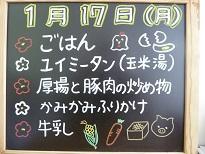 1月17日(月)
ごはん
ユイミータン(玉米湯)
厚揚と豚肉の炒め物
かみかみふりかけ
牛乳